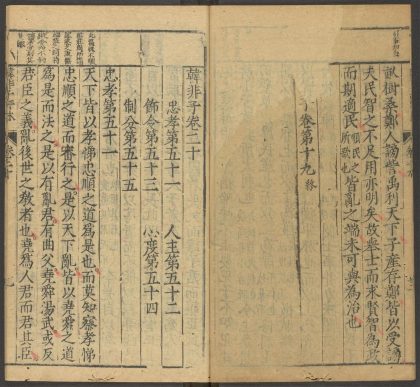 畝樹桑鄭人謗訾禹利天下子產存鄭皆以受謗
夫民智之不足用亦明矣故舉士而求賢智為政
而期適民順民之所欲也皆亂之端未可與為治也
子卷第十九終
韓非子卷二十
忠孝第五十一 人主第五十二
飭令第五十三 心度第五十四
制分第五十五
忠孝第五十一
天下皆以孝悌忠順之道爲是也而莫知察孝悌
忠順之道而審行之是以天下亂皆以堯舜之道
爲是而法之是以有亂君有曲父堯舜湯武或反
君臣之義亂後世之教者也堯爲人君而君其臣